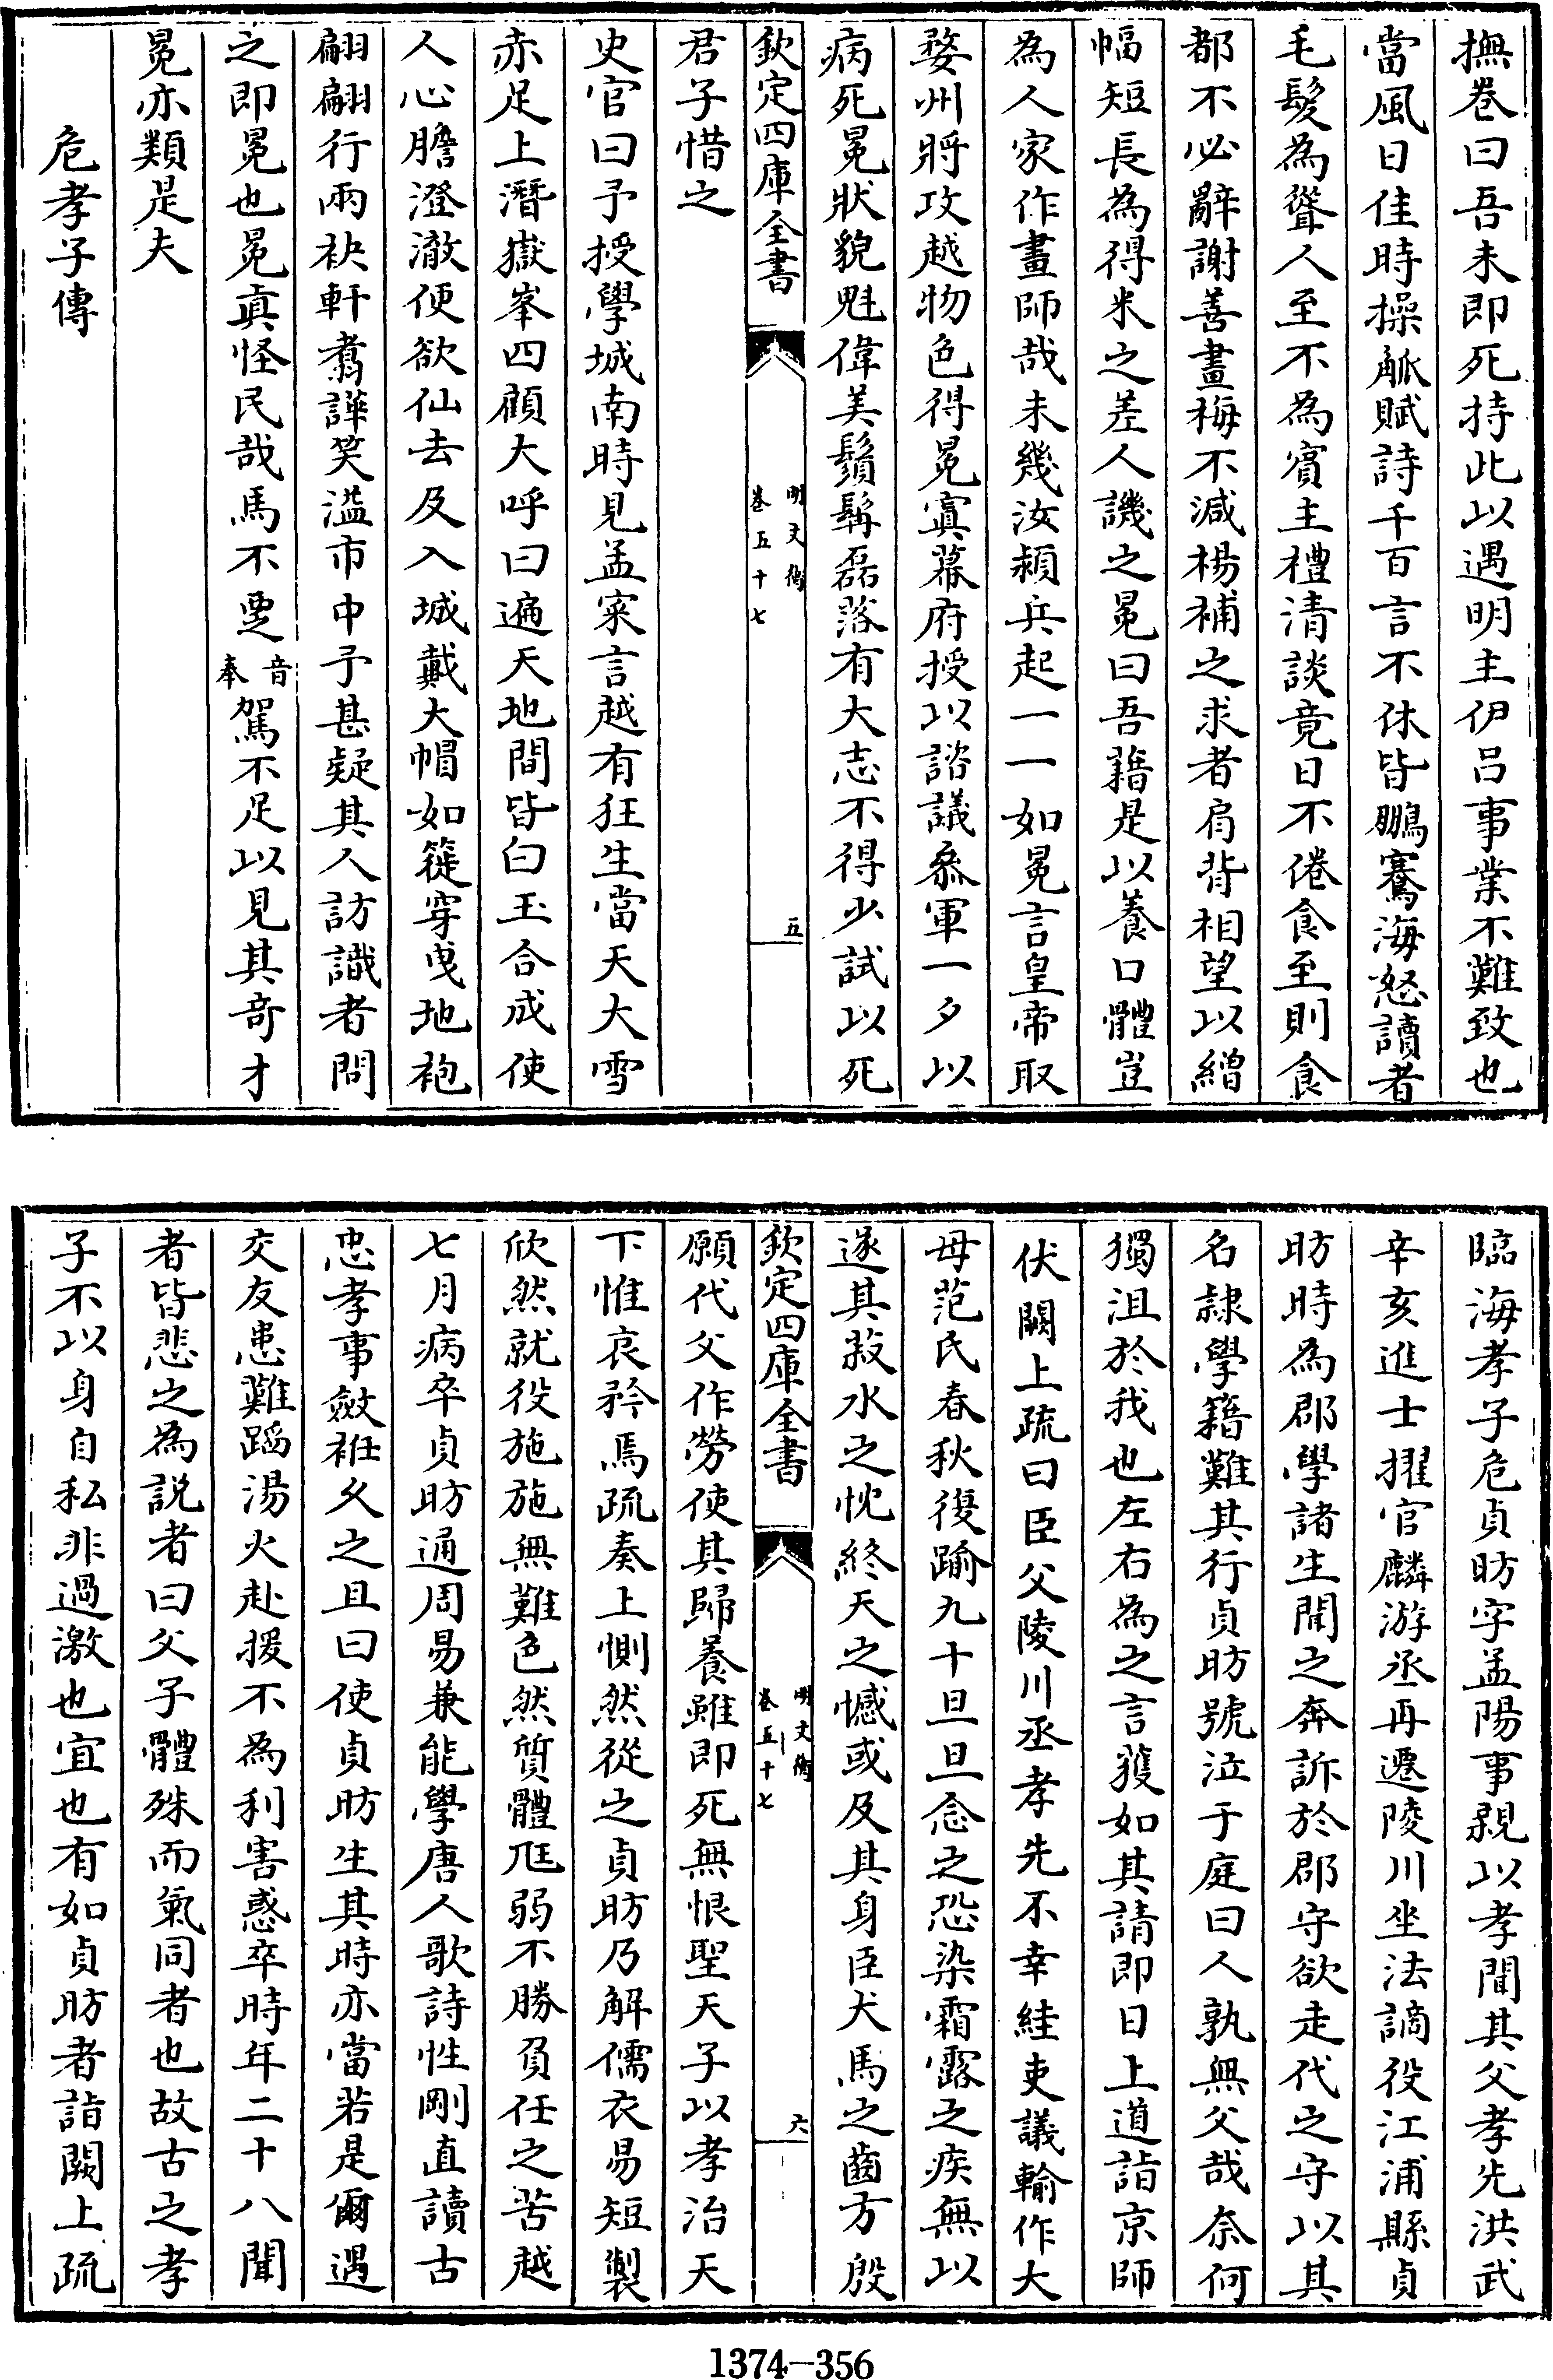 撫卷曰吾未即死持此以遇明主伊吕事業不難致也
當風日佳時操觚賦詩千百言不休皆鵬騫海怒讀者
毛髮為聳人至不為賓主禮清談竟日不倦食至則食
都不必辭謝善畫梅不減楊補之求者肩背相望以繒
幅短長為得米之差人譏之冕曰吾藉是以養口體豈
為人家作畫師哉未幾汝潁兵起一一如冕言皇帝取
婺州將攻越物色得冕寘幕府授以諮議叅軍一夕以
病死冕狀貌魁偉美鬚髯磊落有大志不得少試以死
欽定四庫全書
明文衡
卷五十七
五
君子惜之
史官曰予授學城南時見孟寀言越有狂生當天大雪
赤足上潛嶽峯四顧大呼曰遍天地間皆白玉合成使
人心膽澄澈便欲仙去及入城戴大帽如簁穿曳地袍
翩翩行兩袂軒翥譁笑溢市中予甚疑其人訪識者問
之即冕也冕真怪民哉馬不覂音奉駕不足以見其奇才
冕亦類是夫
危孝子傳
臨海孝子危貞昉字孟陽事親以孝聞其父孝先洪武
辛亥進士擢官麟游丞再遷陵川坐法謫役江浦縣貞
昉時為郡學諸生聞之奔訴於郡守欲走代之守以其
名隷學籍難其行貞昉號泣于庭曰人孰無父哉奈何
獨沮於我也左右為之言獲如其請即日上道詣京師
伏闕上疏曰臣父陵川丞孝先不幸絓吏議輸作大
母范氏春秋復踰九十旦旦念之恐染霜露之疾無以
遂其菽水之忱終天之憾或及其身臣犬馬之齒方殷
欽定四庫全書
明文衡
卷五十七
六
願代父作勞使其歸養雖即死無恨聖天子以孝治天
下惟哀矜焉疏奏上惻然從之貞昉乃解儒衣易短製
欣然就役施施無難色然質體尫弱不勝負任之苦越
七月病卒貞昉通周易兼能學唐人歌詩性剛直讀古
忠孝事斂袵久之且曰使貞昉生其時亦當若是爾遇
交友患難蹈湯火赴援不為利害惑卒時年二十八聞
者皆悲之為説者曰父子體殊而氣同者也故古之孝
子不以身自私非過激也宜也有如貞昉者詣闕上疏
1374—356